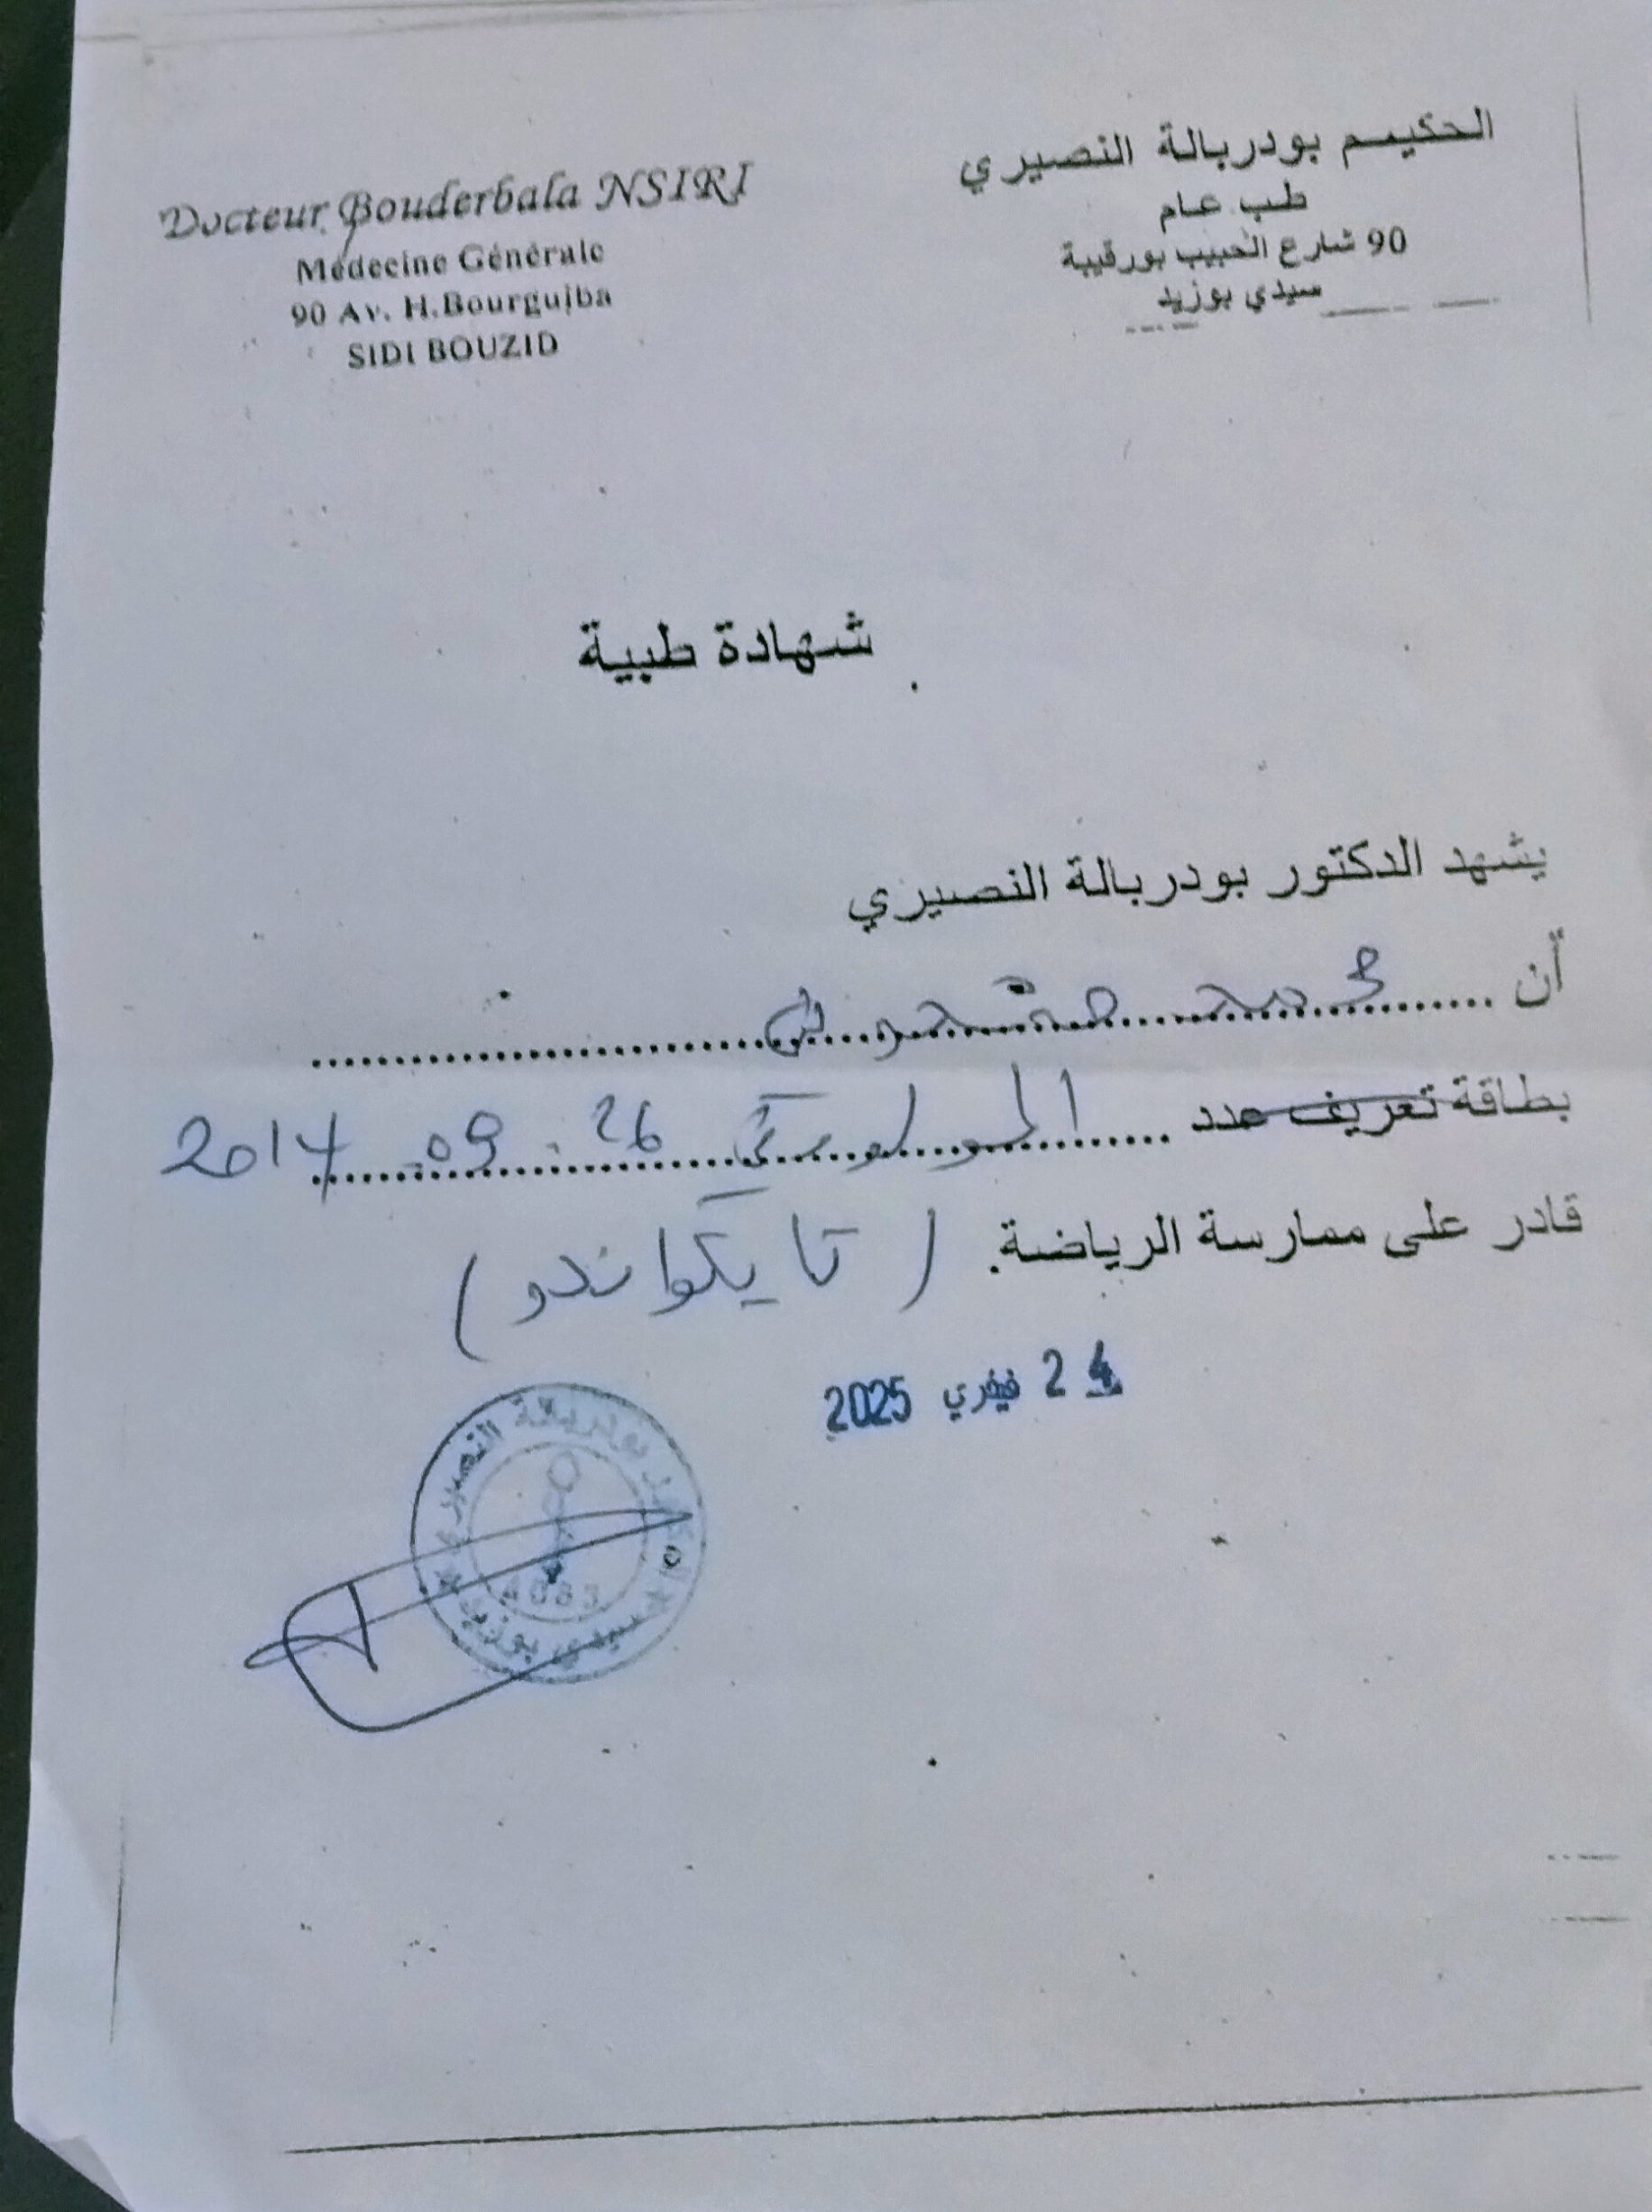 الحكيم بودربالة النصيري
طب عام
90 شارع الحبيب بورقيبة
سيدي بوزيد
Docteur Bouderbala NSIRI
Médecine Générale
90 Av. H.Bourguiba
SIDI BOUZID
شهادة طبية
يشهد الدكتور بودربالة النصيري
أن محمد
بطاقة تعريف عدد المولود في 26 . 09 . 2017
قادر على ممارسة الرياضة. (تايكواندو)
24 فيفري 2025
الدكتور بودربالة النصيري
سيدي بوزيد